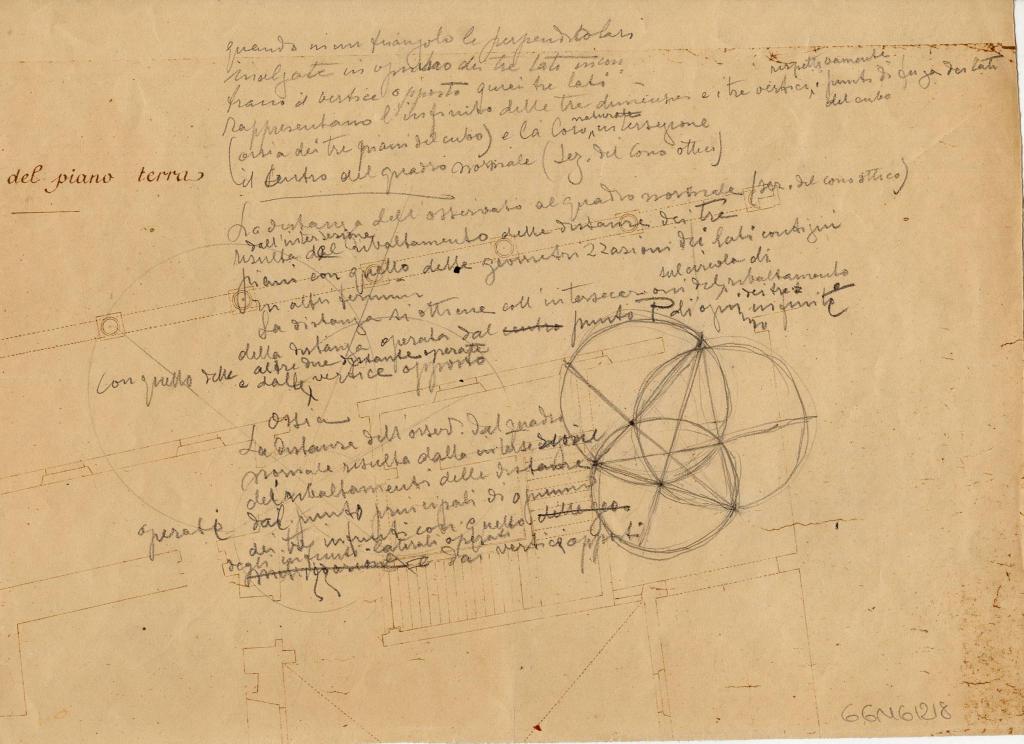 quando in un triangolo le perpendicolari
innalzate in ognuno dei tre lati incon-
trano il vertice opposto quei tre lati
rappresentano l'infinito delle tre dimensioni e i tre vertici, rispettivamente i punti di fuga dei lati
del cubo
(ossia dei tre piani del cubo) e la loro naturale intersezione
il centro del quadro normale (Sez. del Cono ottico)
del piano terra
La distanza dell'osservato al quadro normale (sez. del cono ottico)
dall'intersezione
risulta del ribaltamento delle distanze dei tre
piani con quello delle dei lati contigui
In altri termini
sul circolo di
La distanza si ottiene coll'intersecazioni del ribaltamento
della distanza operata dal centro punto P di ogni dei tre infinite
con quello delle altre due distante operate
e dalle vertice opposto
Ossia
La distanza dell'osserv. dal quadro
normale risulta dalla intersezione
dei ribaltamenti delle distanze
operate dal punto principali di ognuno
dei tre infiniti con quello delle geo
degli infiniti laterali operati
e dai vertici opposti
GGN61218